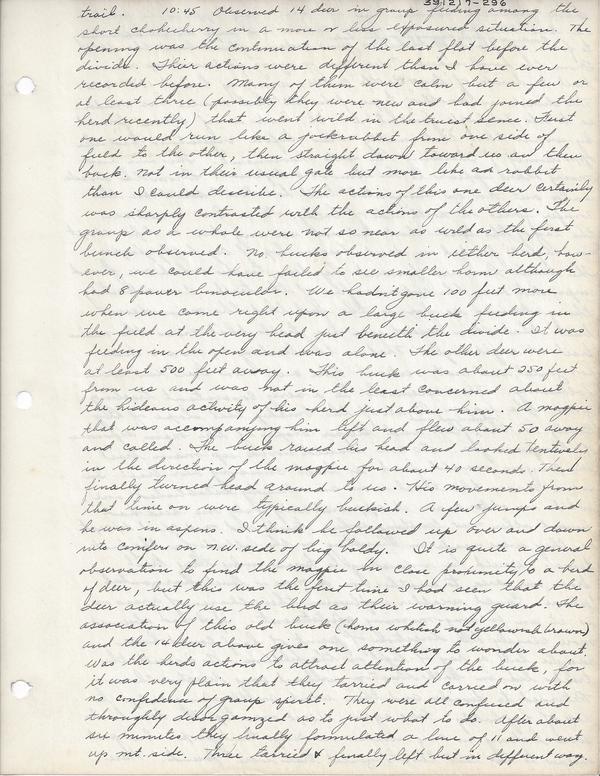 39(2)7-236
trail. 10:45 Observed 14 deer in group feeding among the
short chokecherry in a more or less exposed situation. The
opening was the continuation of the last flat before the
divide. Their actions were different than I have ever
recorded before. Many of them were calm but a few or
at least three (possibly they were new and had joined the
herd recently) that went wild in the truest sence. First
one would run like a jackrabbit from one side of
field to the other, then straight down toward us an then
back. Not in their usual gate but more like ad rabbit
than I could describe. The actions of this one deer certainly
was sharply contrasted with the actions of the others. The
group as a whole were not so near as wild as the first
bunch observed. No bucks observed in either herd, how-
ever, we could have failed to see smaller horn although
had 8 power binocular. We hadn't gone 100 feet more
when we come right upon a large buck feeding in
the field at the very head just beneath the divide. It was
feeding in the open and was alone. The other deer were
at least 500 feet away. This buck was about 250 feet
from us and was not in the least concerned about
the hideous activity of his herd just above him. A magpie
that was accompanying him left and flew about 50 away
and called. The buck raised his head and looked tentively
in the direction of the magpie for about 40 seconds. Then
finally turned head around to us. His movements from
that time on were typically buckish. A few jumps and
he was in aspens. I think he followed up over and down
into conifers on n.w. side of big baldy. It is quite a general
observation to find the magpie in close proximity to a herd
of deer, but this was the first time I had seen that the
deer actually use the bird as their warning guard. The
association of this old buck (horns whitish not yellowish brown)
and the 14 deer above gives one something to wonder about.
Was the herds actions to attract attention of the buck, for
it was very plain that they tarried and carried on with
no confidence of group spirit. They were all confused and
throughly disorganized as to just what to do. After about
six minutes they finally formulated a line of 11 and went
up mt. side. Three tarried & finally left but in different way.